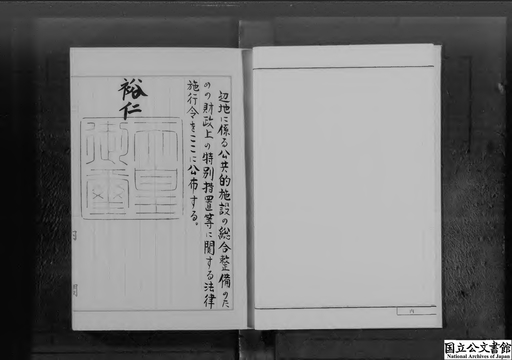 辺地に係る公共的施設の総合整備のた
めの財政上の特別措置等に関する法律
施行令をここに公布する。
裕仁
天皇
御璽
国立公文書館
National Archives of Japan